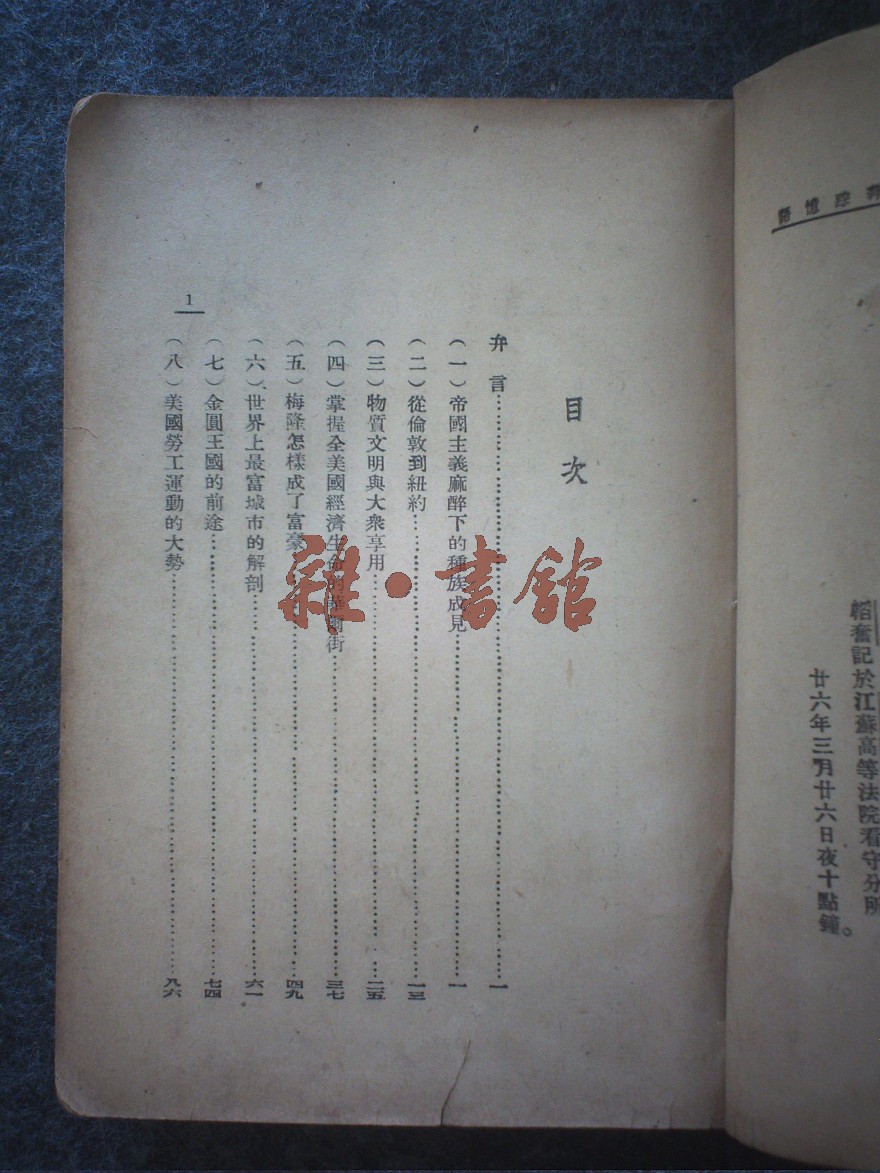 萍踪憶語
韜奮記於江蘇高等法院看守分所
廿六年三月廿六日夜十點鐘。
目次
弁言……一
(一)帝國主義麻醉下的種族成見……一
(二)從倫敦到紐約……一三
(三)物質文明與大衆享用……二五
(四)掌握全美國經濟生命的華爾街……三七
(五)梅隆怎樣成了富豪……四九
(六)世界上最富城市的解剖……六一
(七)金圓王國的前途……七四
(八)美國勞工運動的大勢……九六
1
雜·書館